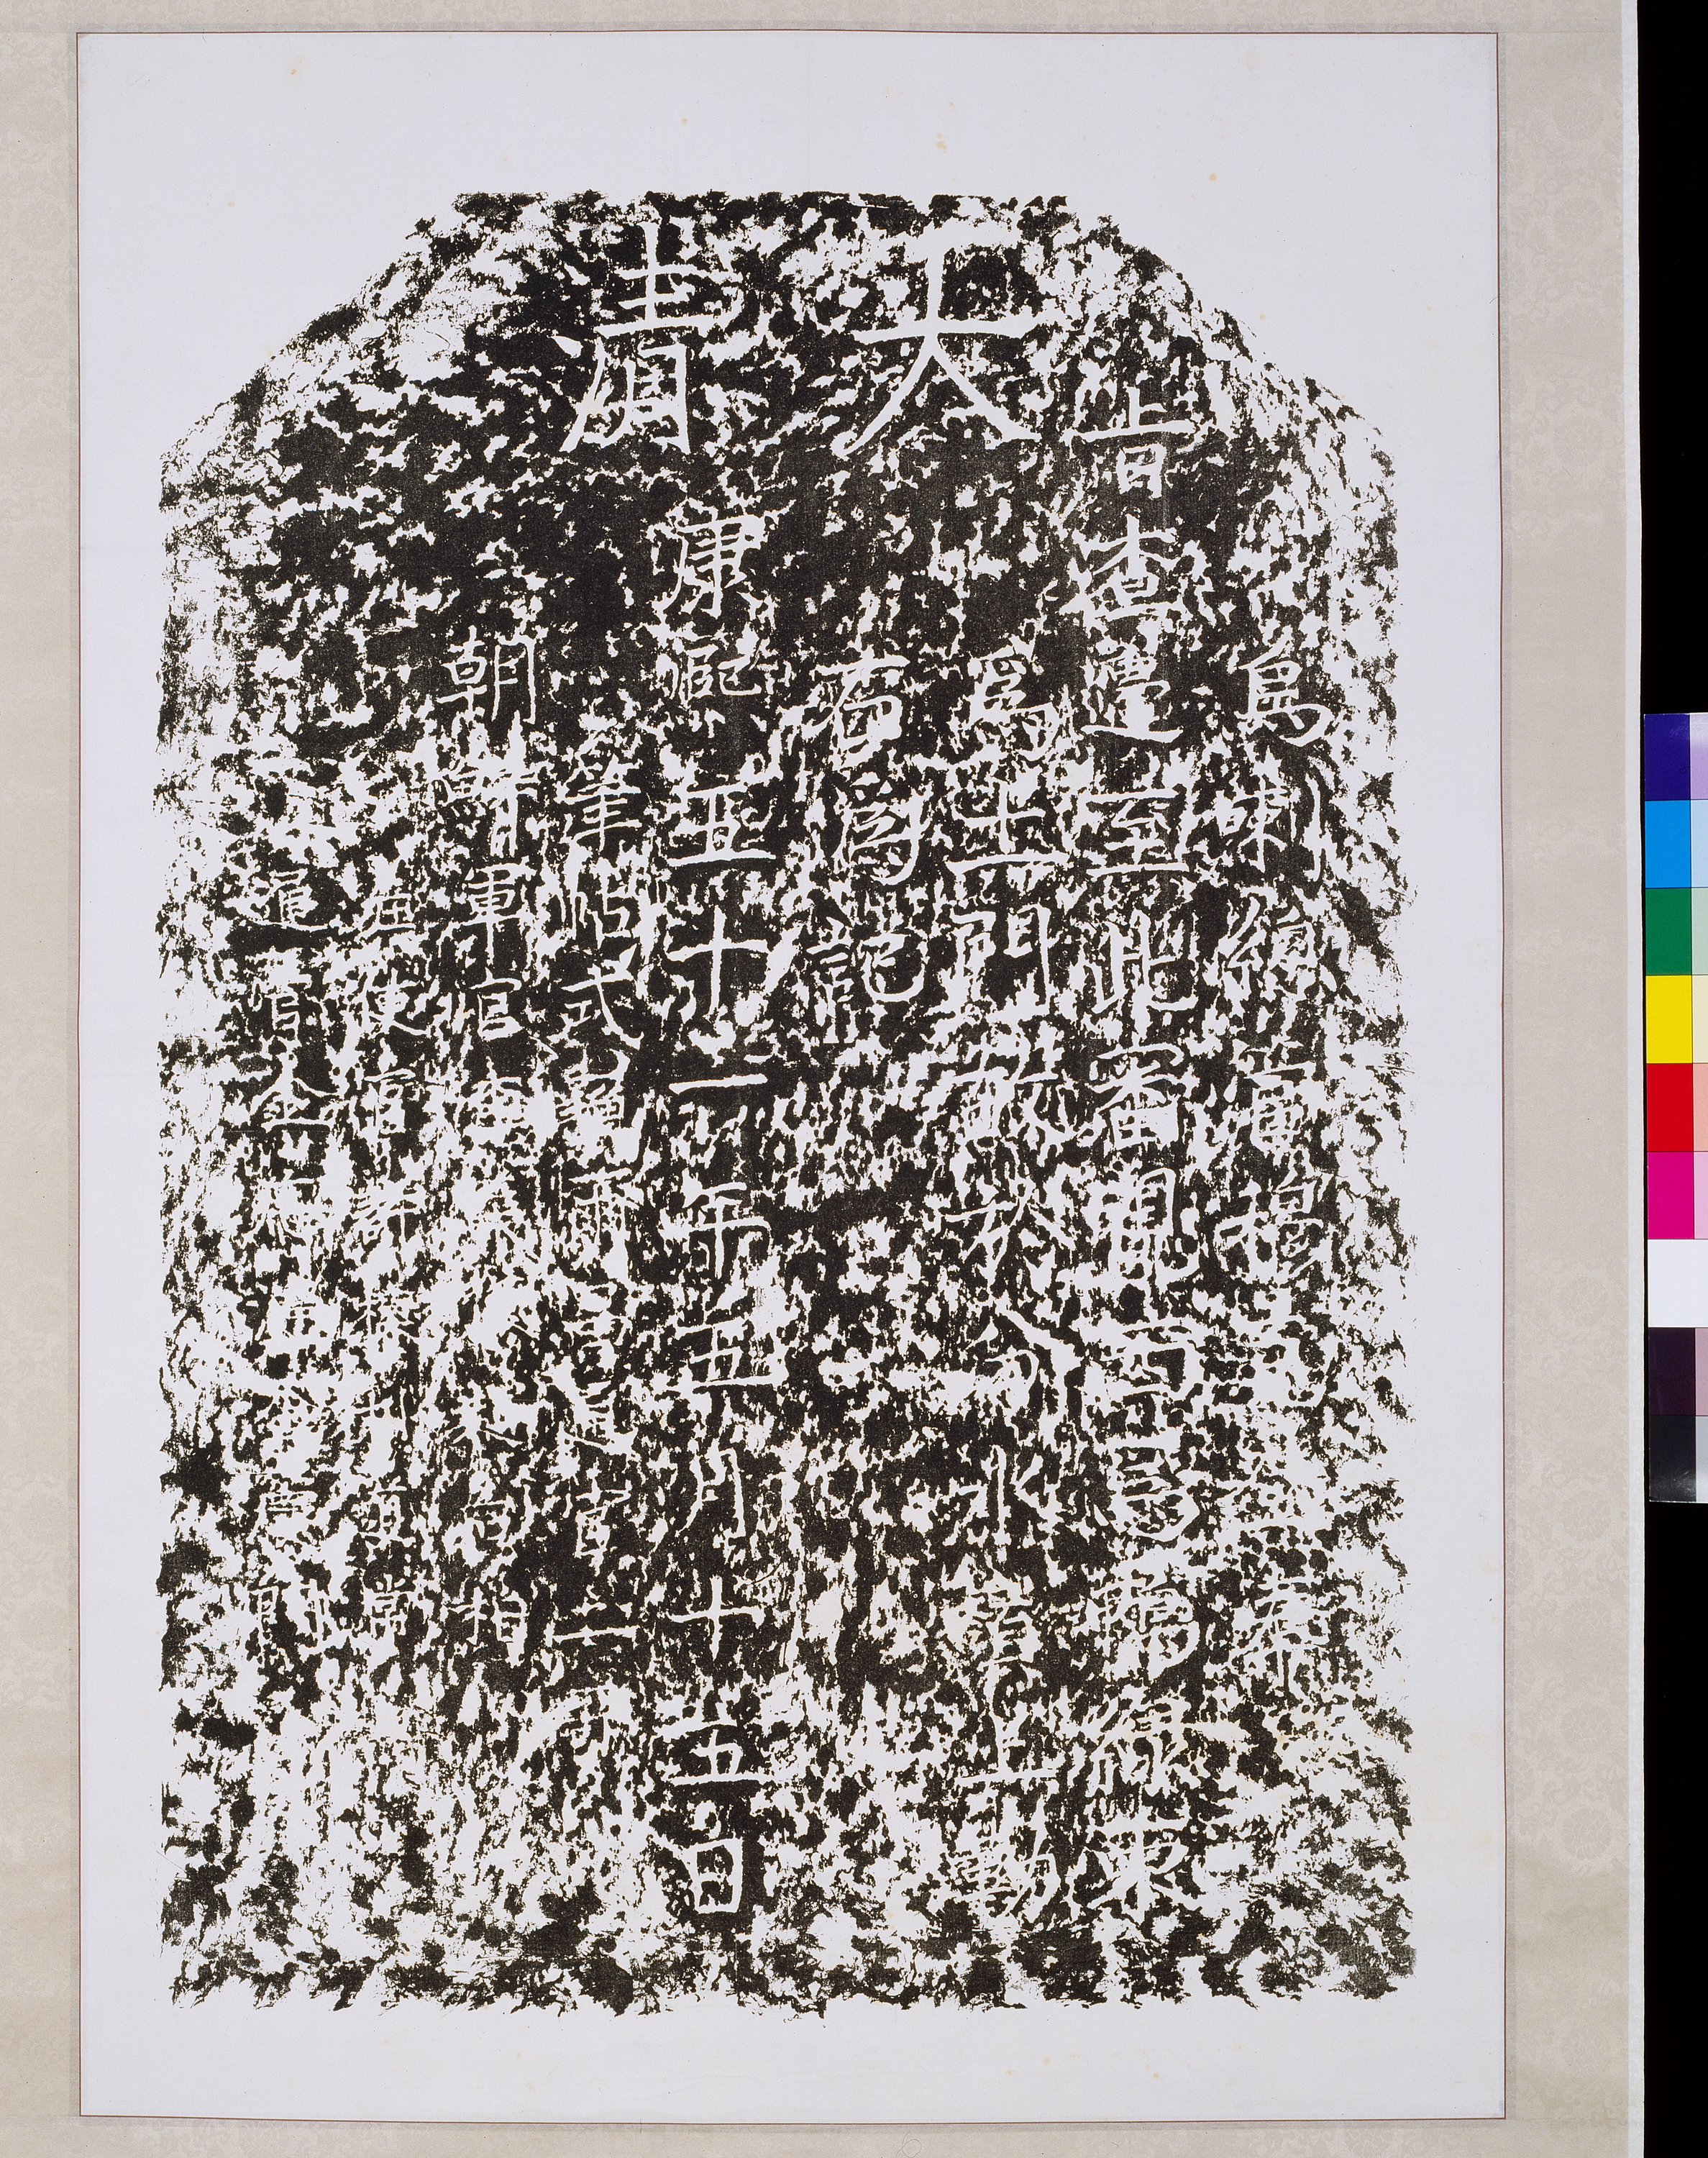 大清
烏喇總管穆克登奉
旨查邊至此審視西爲鴨綠東
爲土門故於分水嶺上勒
石爲記
康熙五十一年五月十五日
筆帖式蘇爾昌通官二哥
朝鮮軍官李義復趙台相
差使官許樑朴道常
通官金應憲金慶門